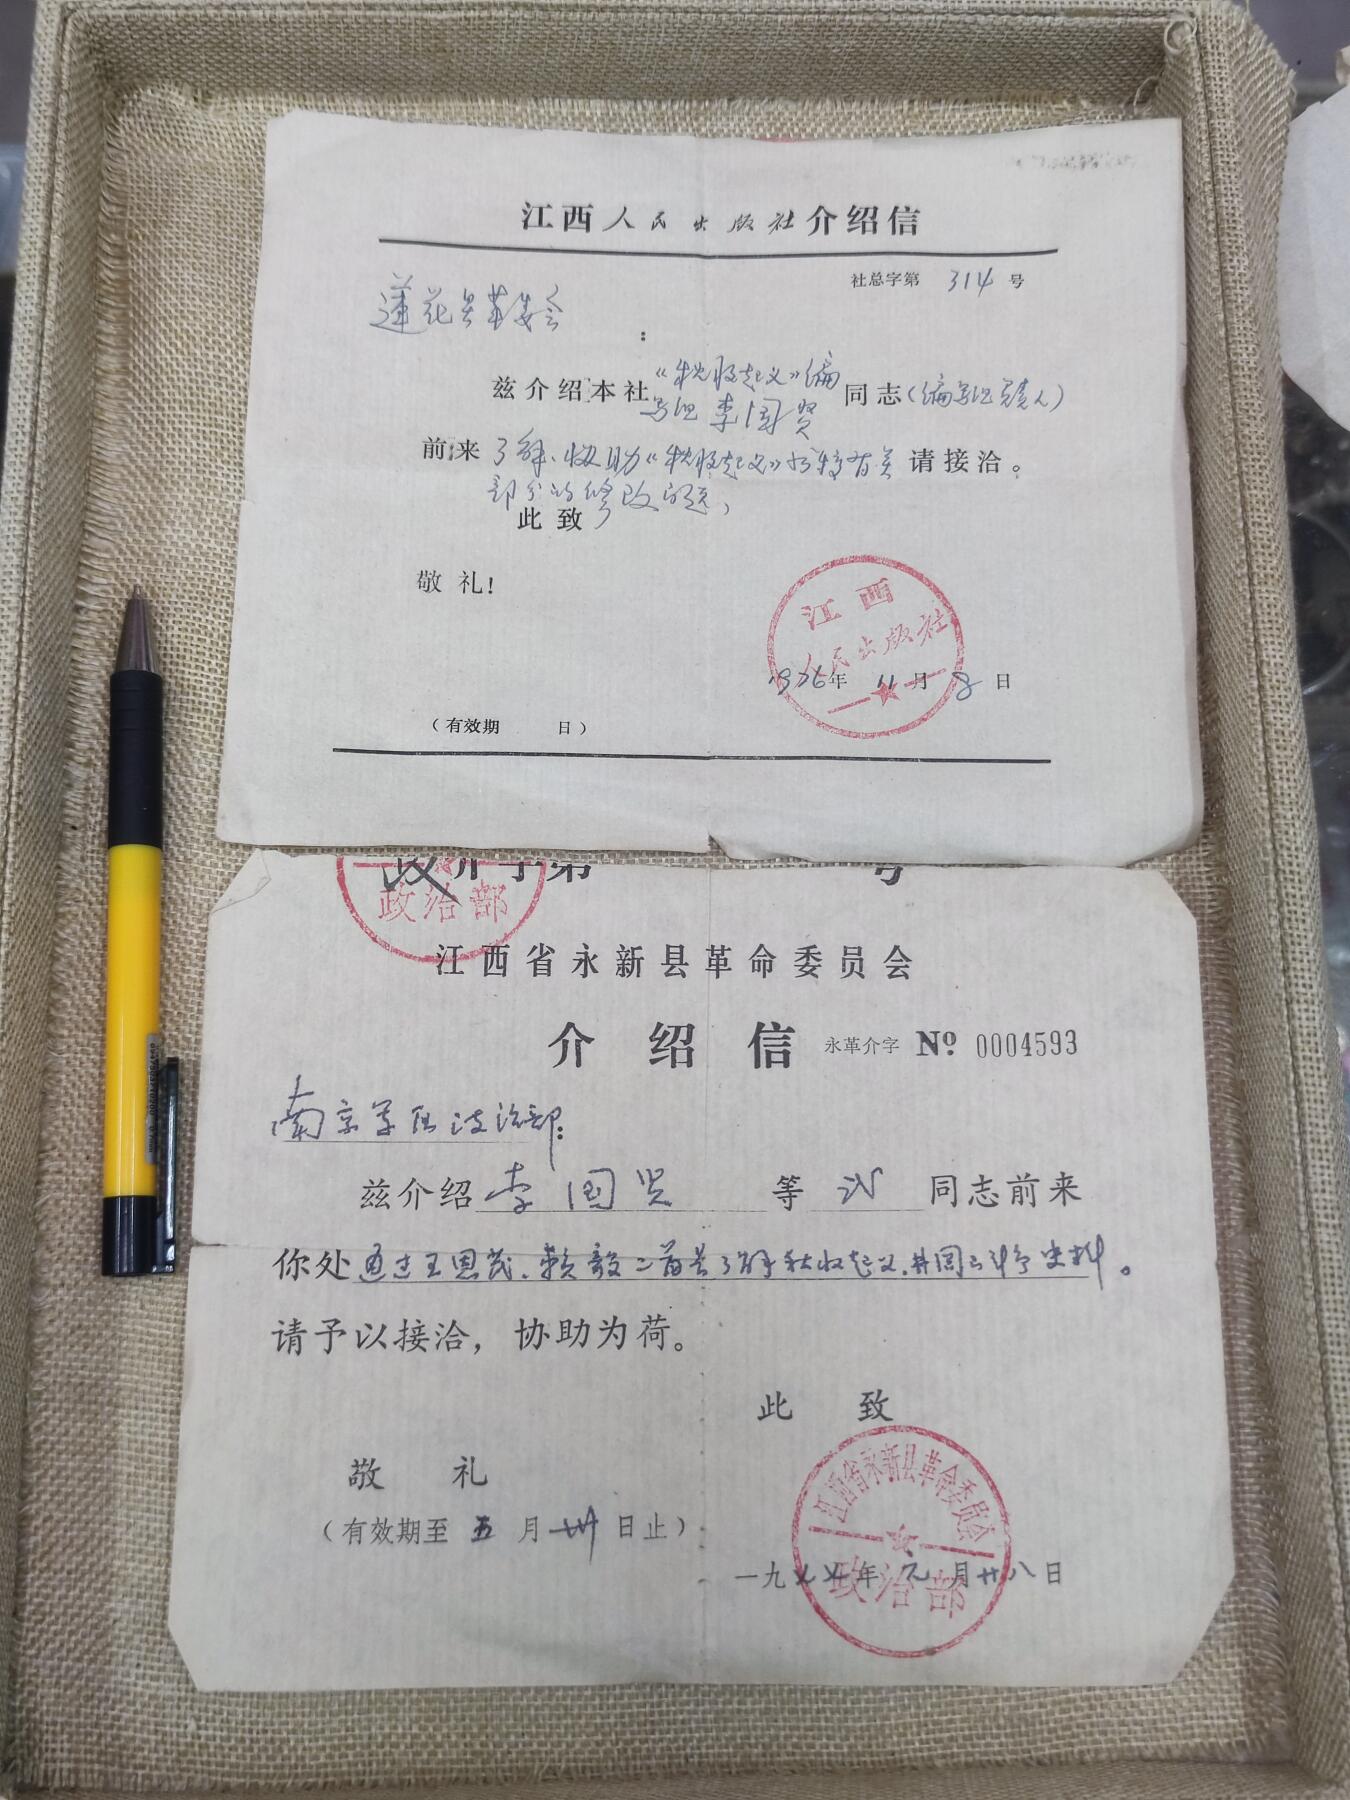 江西人民出版社介绍信
社总字第 314 号
莲花县革委会:
兹介绍本社《秋收起义》编写组李国贤同志(编写组负责人)
前来了解、协助《秋收起义》书稿有关请接洽。
部分的修改问题,
此致
敬礼!
江西
人民出版社
1976年 11月 8日
(有效期 日)
政介字第 号
政治部
江西省永新县革命委员会
介绍信 永革介字 No 0004593
南京军区政治部:
兹介绍李国贤 等 同志前来
你处通过王恩茂、赖毅二首长了解秋收起义、井冈山斗争史料。
请予以接洽,协助为荷。
此致
敬礼
(有效期至五月卅日止)
江西省永新县革命委员会
政治部
一九七七年元月廿八日